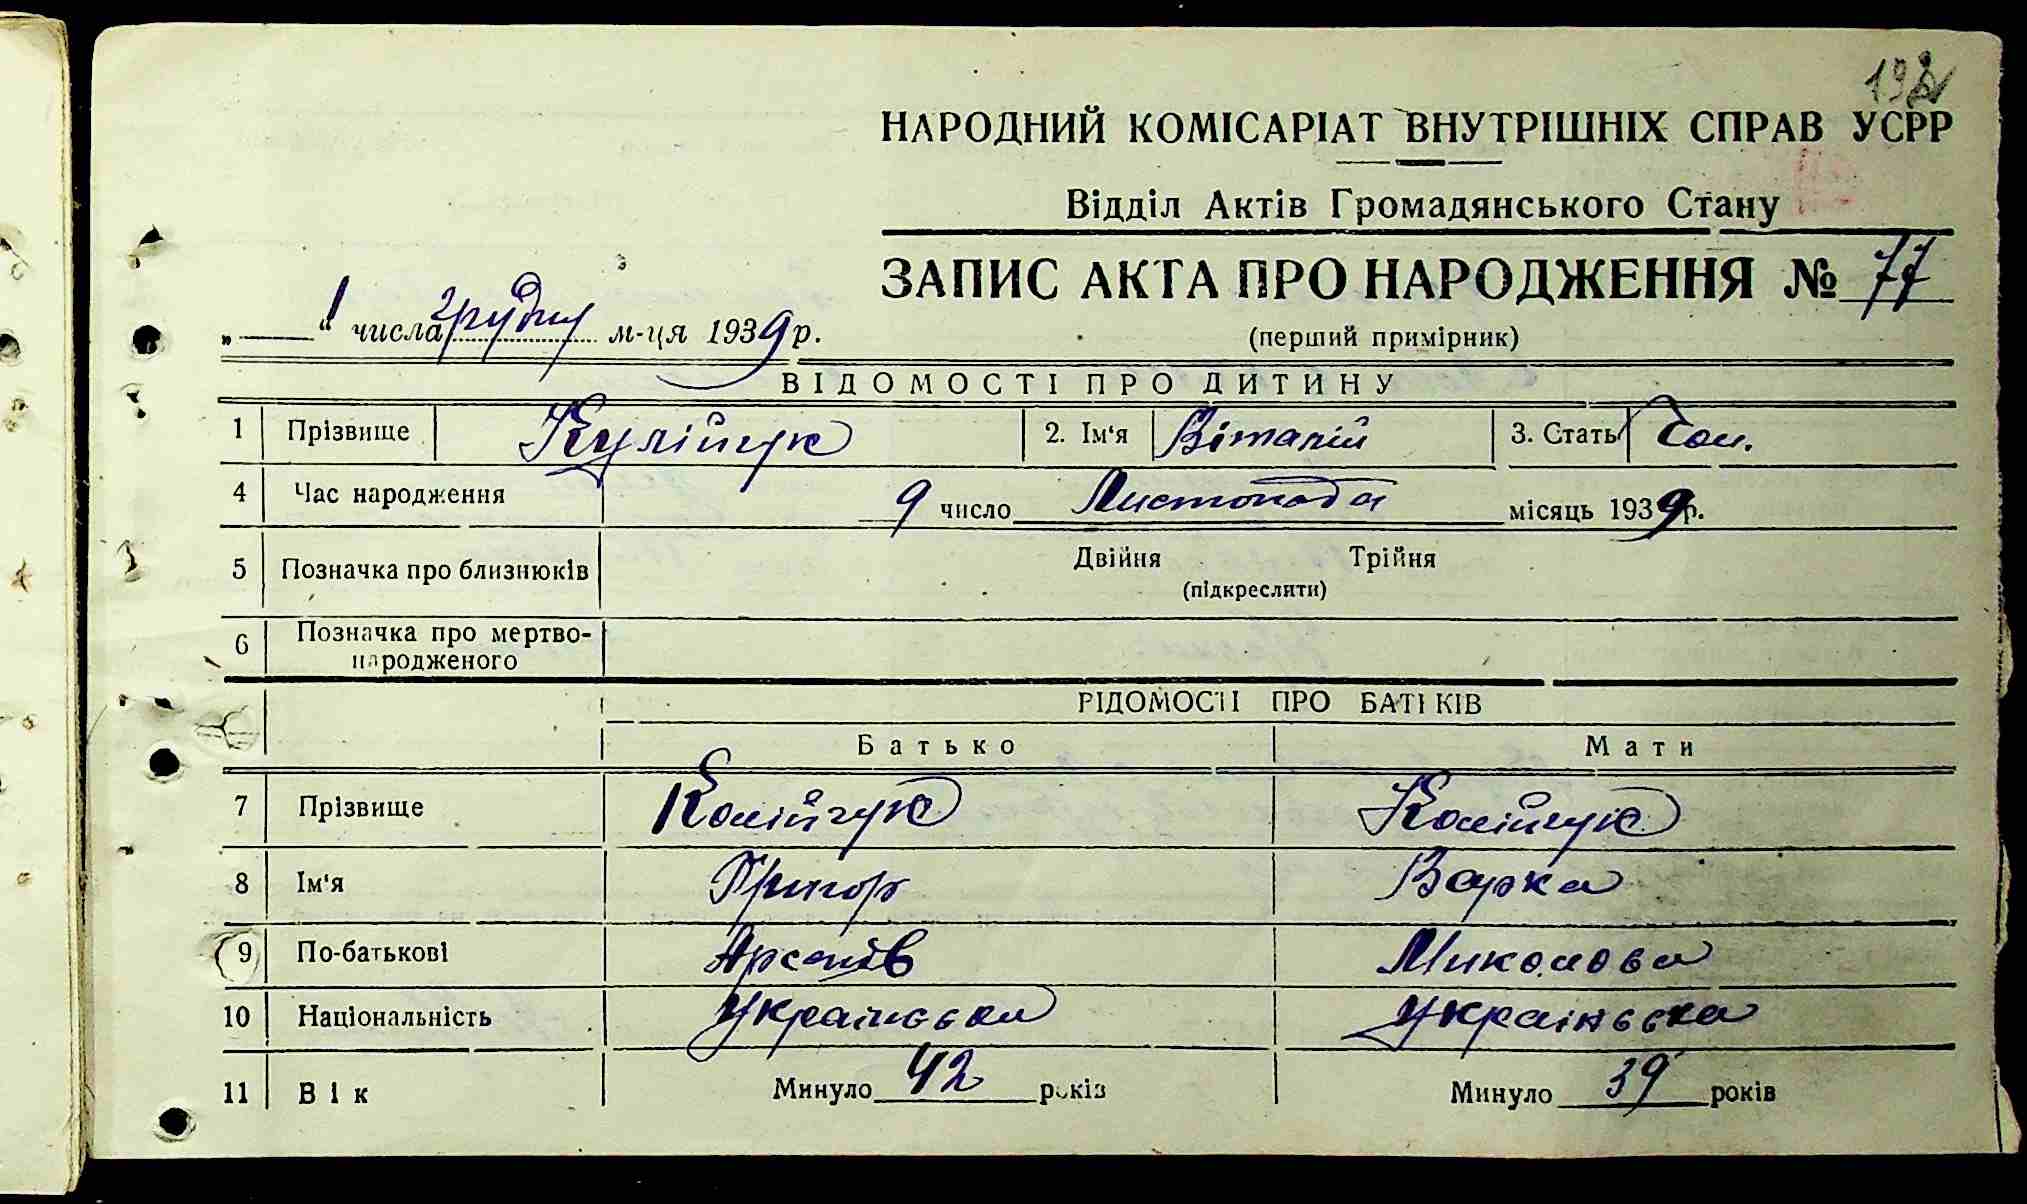 НАРОДНИЙ КОМІСАРІАТ ВНУТРІШНІХ СПРАВ УСРР
Відділ Актів Громадянського Стану
ЗАПИС АКТА ПРО НАРОДЖЕННЯ № 77
„ 1 “ числа грудня м-ця 1939 р.
(перший примірник)
ВІДОМОСТІ ПРО ДИТИНУ
1 Прізвище Кулійчук 2. Ім'я Віталій 3. Стать Чол.
4 Час народження 9 число Листопада місяць 1939 р.
5 Позначка про близнюків Двійня Трійня
(підкреслити)
6 Позначка про мертво-
народженого
ВІДОМОСТІ ПРО БАТЬКІВ
Батько Мати
7 Прізвище Колійчук Колійчук
8 Ім'я Григор Варка
9 По-батькові Арсенів Миколова
10 Національність Українська Українська
11 Вік Минуло 42 років Минуло 39 років